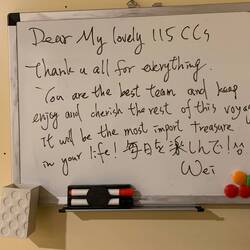 Dear My lovely 115 CCs
Thank u all for everything.
You are the best team and keep
enjoy and cherish the rest of this voyage
it will be the most import treasure
in your life! 毎日を楽しんで!
Wei